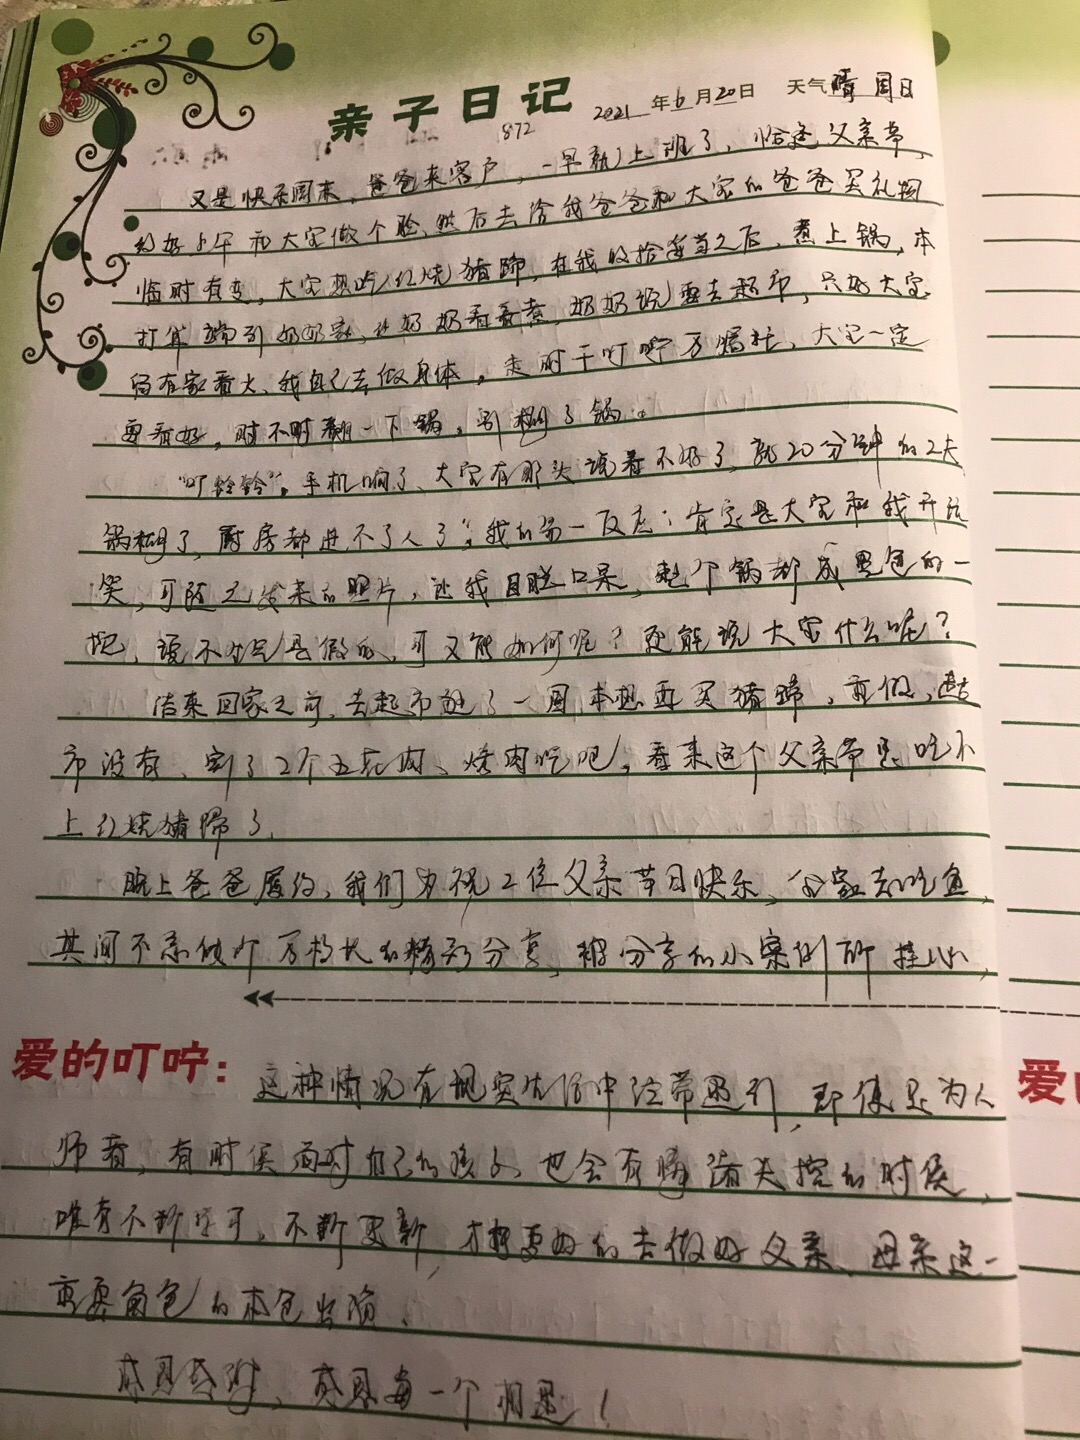 亲子日记 2021年6月20日 天气晴 周日
872
又是快乐周末，爸爸来客户，一早就上班了，恰逢父亲节，
约好上午和大宝做个脸，然后去给我爸爸和大宝的爸爸买礼物
临时有变，大宝想吃红烧猪蹄，在我收拾妥当之后，煮上锅，本
打算端到奶奶家，让奶奶看着煮，奶奶说要去超市，只好大宝
留在家看火，我自己去做身体。走时千叮咛万嘱托，大宝一定
要看好，时不时翻一下锅，别糊了锅。
“叮铃铃”，手机响了，大宝在那头说着不好了，就20分钟的2大
锅糊了，厨房都进不了人了，我的第一反应：肯定是大宝和我开玩
笑，可随之发来的照片，让我目瞪口呆，整个锅都成黑色的一
，说不生气是假的，可又能如何呢？还能说大宝什么呢？
结束回家之前，去超市逛了一圈本想再买猪蹄，重做，超
市没有，割了2个五花肉，烤肉吃吧，看来这个父亲节是吃不
上红烧猪蹄了。
晚上爸爸履约，我们为祝2位父亲节日快乐，全家去吃鱼，
其间不忘做万校长的精彩分享，被分享的小案例所挂心，
爱的叮咛：这种情况在现实生活中经常遇到，即使是为人
师者，有时候面对自己的孩子，也会有情绪失控的时候，
唯有不断学习，不断更新，才能更好的去做好父亲、母亲这一
重要角色的本色出演。
感恩感谢，感恩每一个相遇！
爱